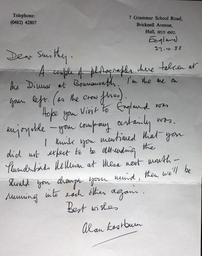 Telephone:
(0482) 42807
7 Grammar School Road,
Bricknell Avenue,
Hull,
England
Dear Smithy,
A couple of photographs here taken at
the Dinner at Bournemouth. I'm the one on
your left. (as the crow flies)
Hope you visit to England was
enjoyable – your company certainly was.
I think you mentioned that you
did not expect to be attending the
next month –
should you change your mind, then we'll be
running into each other again.
Best wishes
Alan